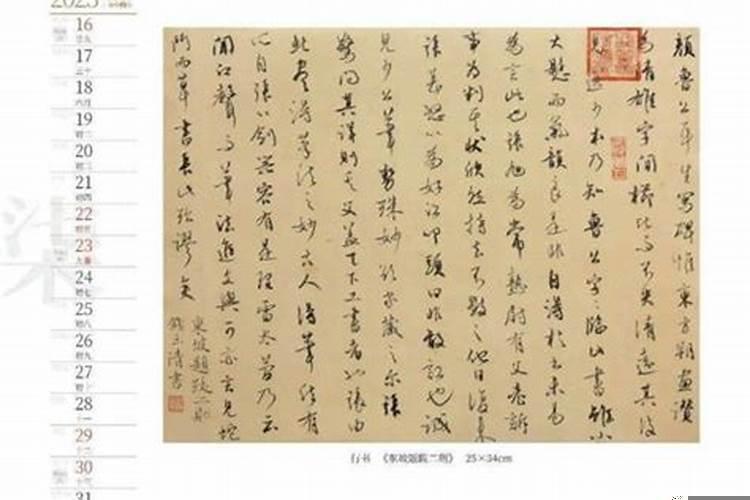 2023
16
17
18
19
20
21
22
23
24
25
26
27
28
29
30
31
颜鲁公平生写碑惟东方朔画赞
为清雄字间栉比而不失清远其后
见逸少本乃知鲁公字字临此书虽小
大悬而气韵良是非自得于书未易
为言此也张旭为常熟尉有父老诉
事为判其状欣然持去不数数他日复来
张甚怒以为好讼叩头曰非敢讼也诚
见少公笔势殊妙欲家藏之尔张
惊问其详则其父盖天下工书者也张由
此尽得笔法之妙古人得笔法有
所自张以剑器容有是理雷太简乃云
闻江声而笔法进文与可亦言见蛇
斗而草书长此殆谬矣
东坡题跋二则
行书 《东坡题跋二则》 25×34cm